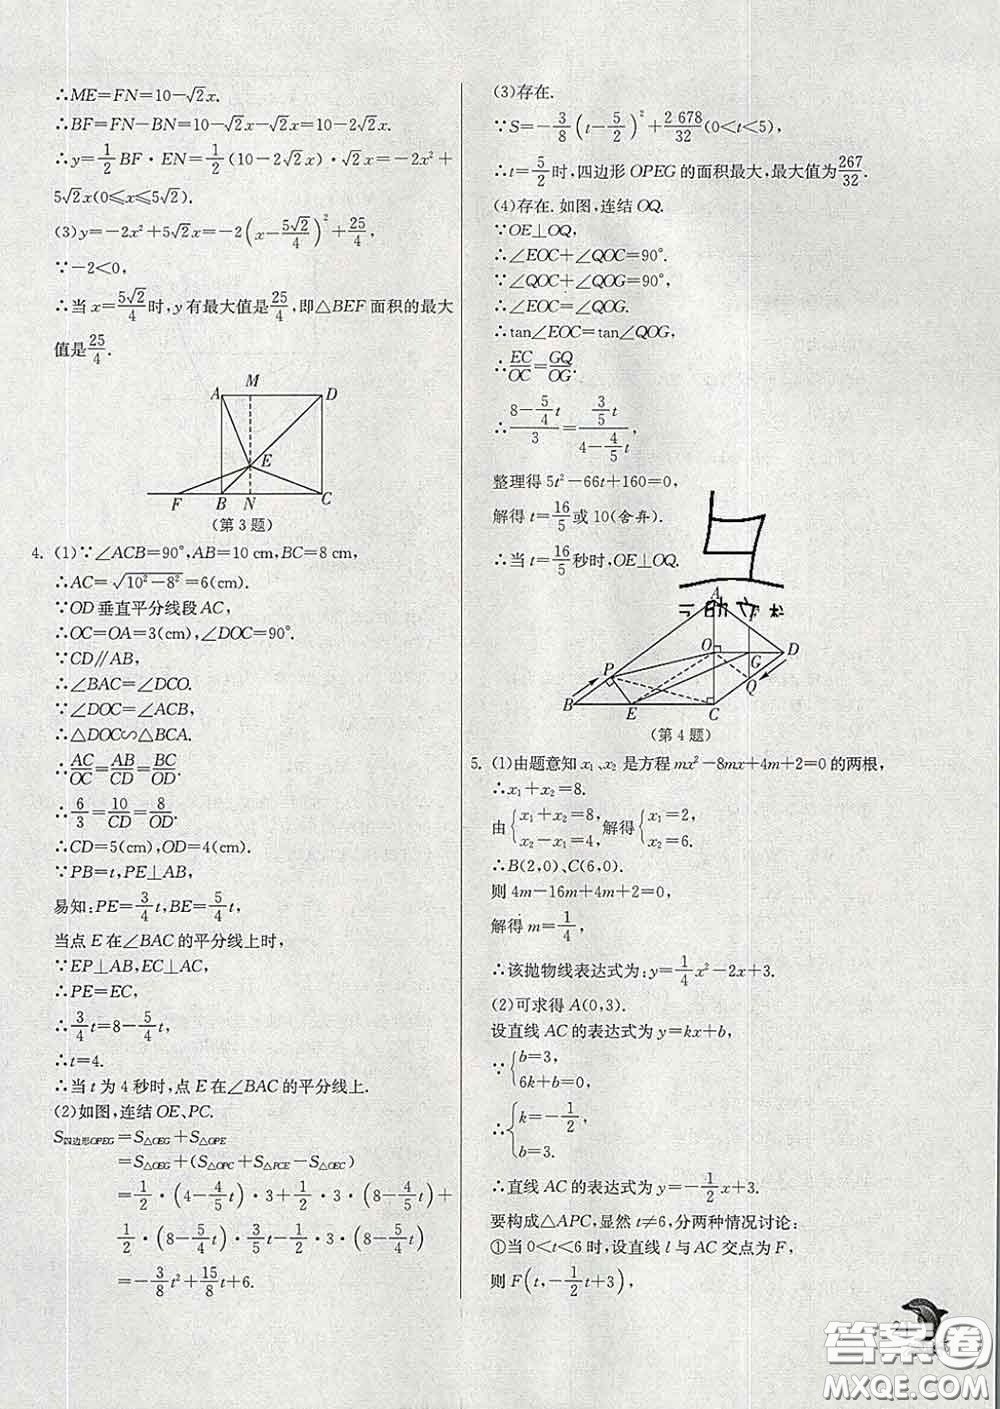 ∴ME=FN=10-√2x.
∴BF=FN-BN=10-√2x-√2x=10-2√2x.
∴y=1/2 BF·EN=1/2(10-2√2x)·√2x=-2x²+
5√2x(0≤x≤5√2).
(3)y=-2x²+5√2x=-2(x-5√2/4)²+25/4,
∵-2<0,
∴当 x=5√2/4 时,y 有最大值是 25/4,即△BEF 面积的最大
值是 25/4.
A M D
E
F B N C
(第 3 题)
4. (1)∵∠ACB=90°,AB=10 cm,BC=8 cm,
∴AC=√(10²-8²)=6(cm).
∵OD 垂直平分线段 AC,
∴OC=OA=3(cm),∠DOC=90°.
∵CD∥AB,
∴∠BAC=∠DCO.
∵∠DOC=∠ACB,
∴△DOC∽△BCA.
∴AC/OC=AB/CD=BC/OD.
∴6/3=10/CD=8/OD.
∴CD=5(cm),OD=4(cm).
∵PB=t,PE⊥AB,
易知:PE=3/4 t,BE=5/4 t,
当点 E 在∠BAC 的平分线上时,
∵EP⊥AB,EC⊥AC,
∴PE=EC,
∴3/4 t=8-5/4 t,
∴t=4.
∴当 t 为 4 秒时,点 E 在∠BAC 的平分线上.
(2)如图,连结 OE、PC.
S四边形OPEG=S△OEG+S△OPE
=S△OEG+(S△OPC+S△PCE-S△OEC)
=1/2·(4-4/5 t)·3+1/2·3·(8-4/5 t)+
1/2·(8-5/4 t)·3/5 t-1/2·3·(8-5/4 t)
=-3/8 t²+15/8 t+6.
(3)存在.
∵S=-3/8(t-5/2)²+2 678/32(0<t<5),
∴t=5/2 时,四边形 OPEG 的面积最大,最大值为 267/32.
(4)存在.如图,连结 OQ.
∵OE⊥OQ,
∴∠EOC+∠QOC=90°.
∵∠QOC+∠QOG=90°,
∴∠EOC=∠QOG.
∴tan∠EOC=tan∠QOG,
∴EC/OC=GQ/OG.
∴(8-5/4 t)/3=(3/5 t)/(4-4/5 t),
整理得 5t²-66t+160=0,
解得 t=16/5 或 10(舍弃).
∴当 t=16/5 秒时,OE⊥OQ.
A
O D
P G
Q
B E C
(第 4 题)
5. (1)由题意知 x₁、x₂ 是方程 mx²-8mx+4m+2=0 的两根,
∴x₁+x₂=8.
由{x₁+x₂=8, x₂-x₁=4, 解得{x₁=2, x₂=6.
∴B(2,0)、C(6,0).
则 4m-16m+4m+2=0,
解得 m=1/4,
∴该抛物线表达式为:y=1/4 x²-2x+3.
(2)可求得 A(0,3).
设直线 AC 的表达式为 y=kx+b,
∵{b=3, 6k+b=0,
∴{k=-1/2, b=3.
∴直线 AC 的表达式为 y=-1/2 x+3.
要构成△APC,显然 t≠6,分两种情况讨论:
①当 0<t<6 时,设直线 l 与 AC 交点为 F,
则 F(t,-1/2 t+3),
答案圈
MXQE.COM